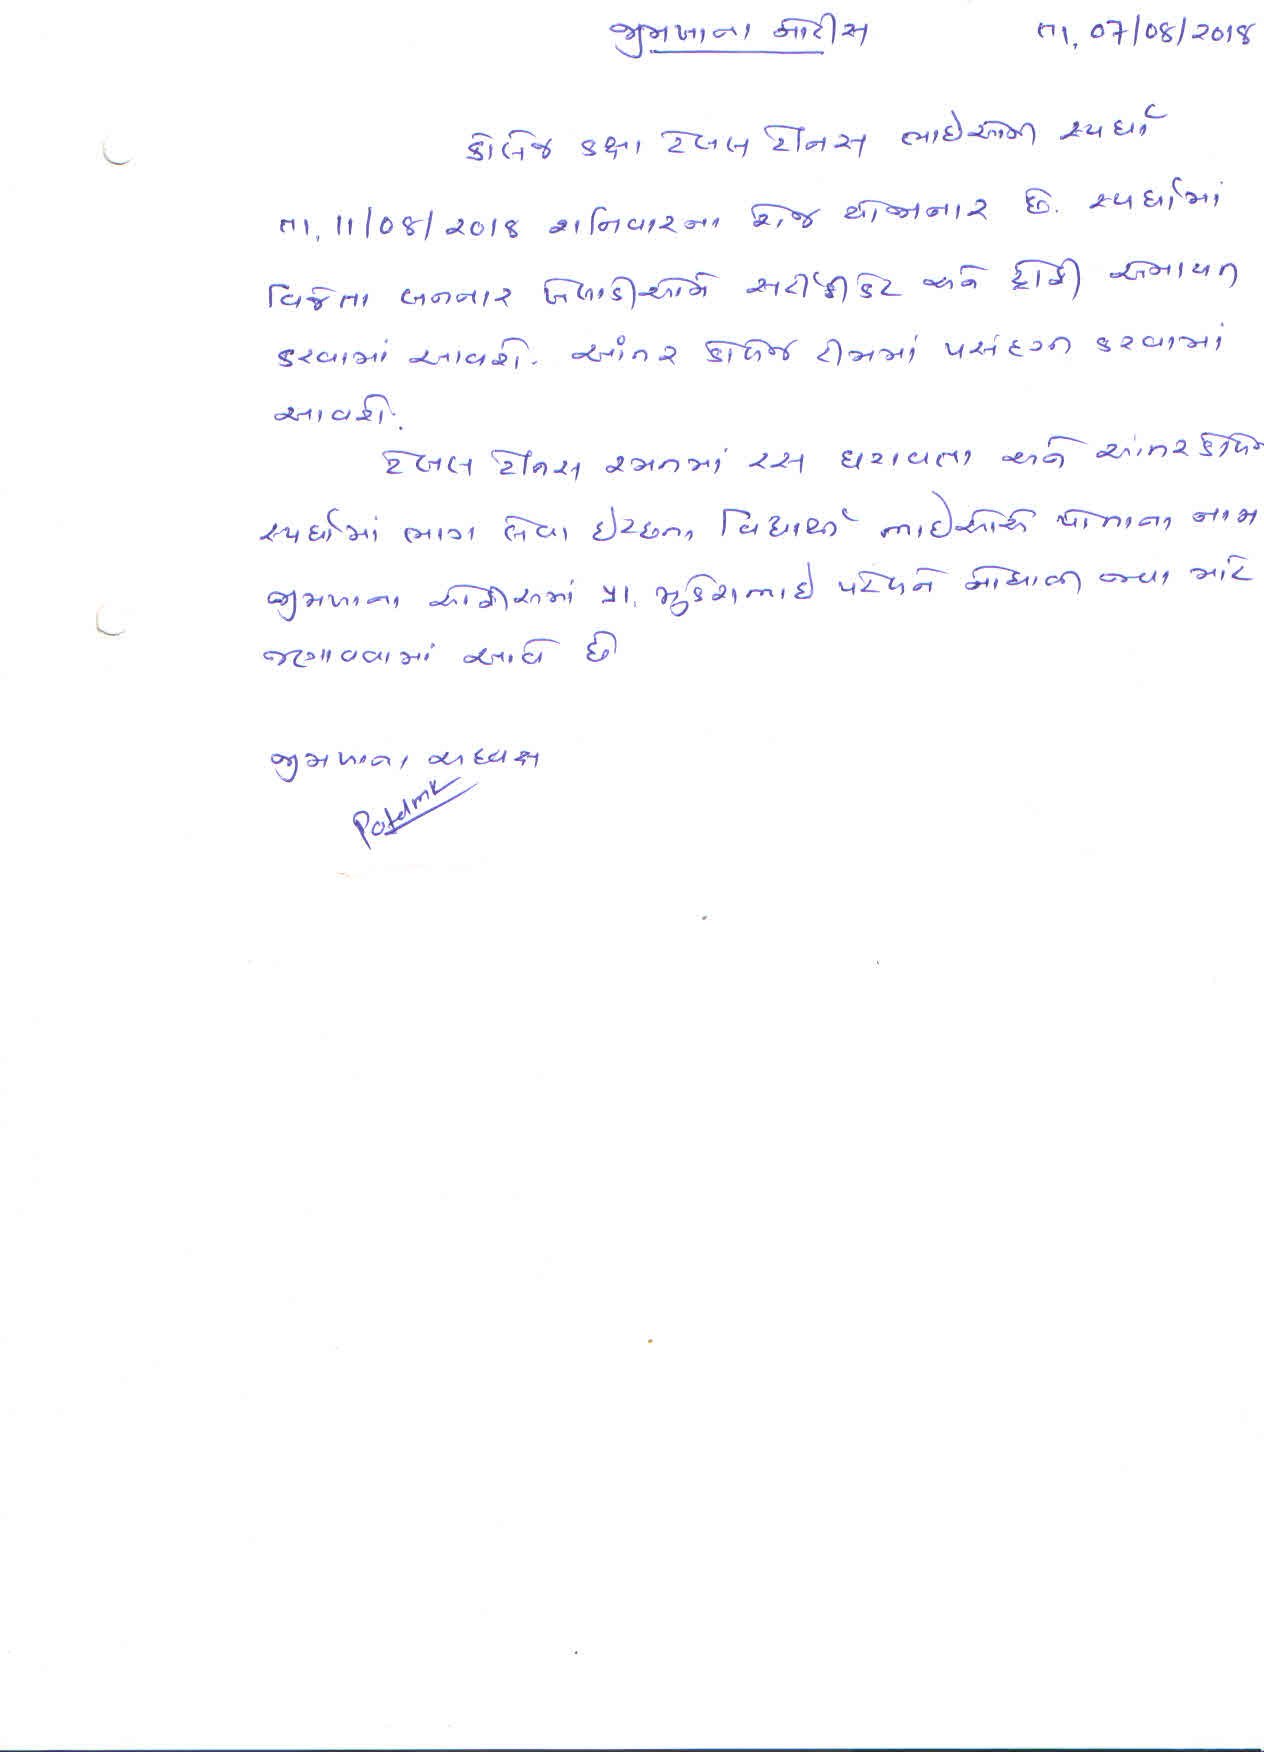 જીમખાના નોટીસ તા. 07/08/2018
કોલેજ કક્ષા ટેબલ ટેનિસ ભાઈઓની સ્પર્ધા
તા. 11/08/2018 શનિવારના રોજ યોજાનાર છે. સ્પર્ધામાં
વિજેતા બનનાર ખેલાડીઓને સર્ટીફીકેટ અને ટ્રોફી એનાયત
કરવામાં આવશે. આંતર કોલેજ ટીમમાં પસંદગી કરવામાં
આવશે.
ટેબલ ટેનિસ રમતમાં રસ ધરાવતા અને આંતર કોલેજ
સ્પર્ધામાં ભાગ લેવા ઈચ્છતા વિદ્યાર્થી ભાઈઓએ પોતાના નામ
જીમખાના ઓફીસમાં પ્રા. મુકેશભાઈ પટેલને નોંધાવી જવા માટે
જણાવવામાં આવે છે
જીમખાના અધ્યક્ષ
Patelmk